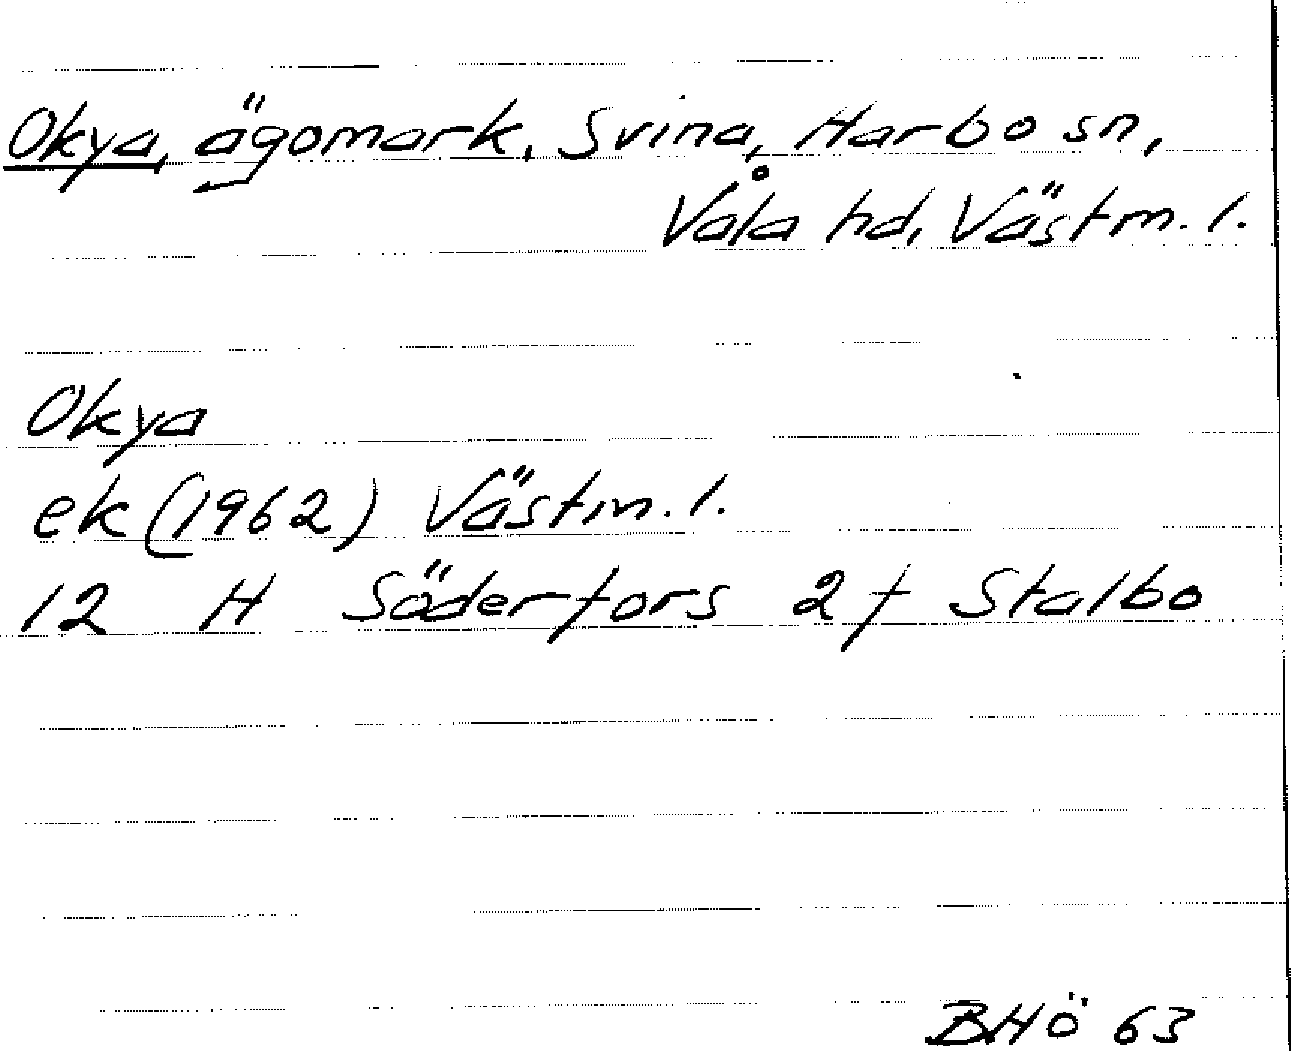 Okya, ägomark, Svina, Harbo sn,
Våla hd, Västm. l.
Okya
ek (1962) Västm. l.
12 H Söderfors 2f Stalbo
BHÖ 63